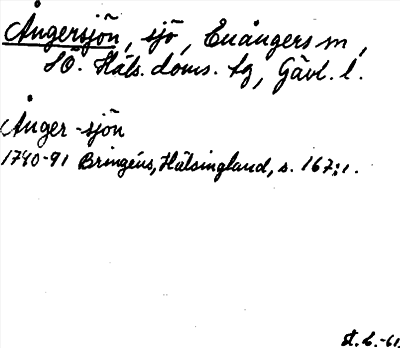 Ångersjön, sjö, Enångers sn,
SÖ. Häls. doms. tg, Gävl. l.
Ånger-sjön
1740-91 Bringéus, Hälsingland, s. 167:1.
st. L.-61